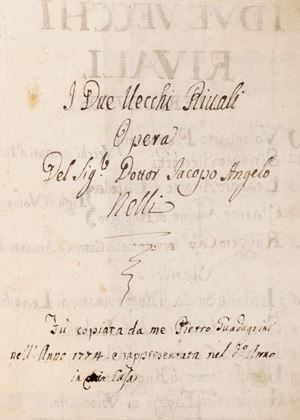 I Due Vecchi Rivali
Opera
Del Sig.r Dottor Jacopo Angelo
Nelli
Fu copiata da me Pietro
nell'Anno 1774 e rappresentata nel Anno
in Casa